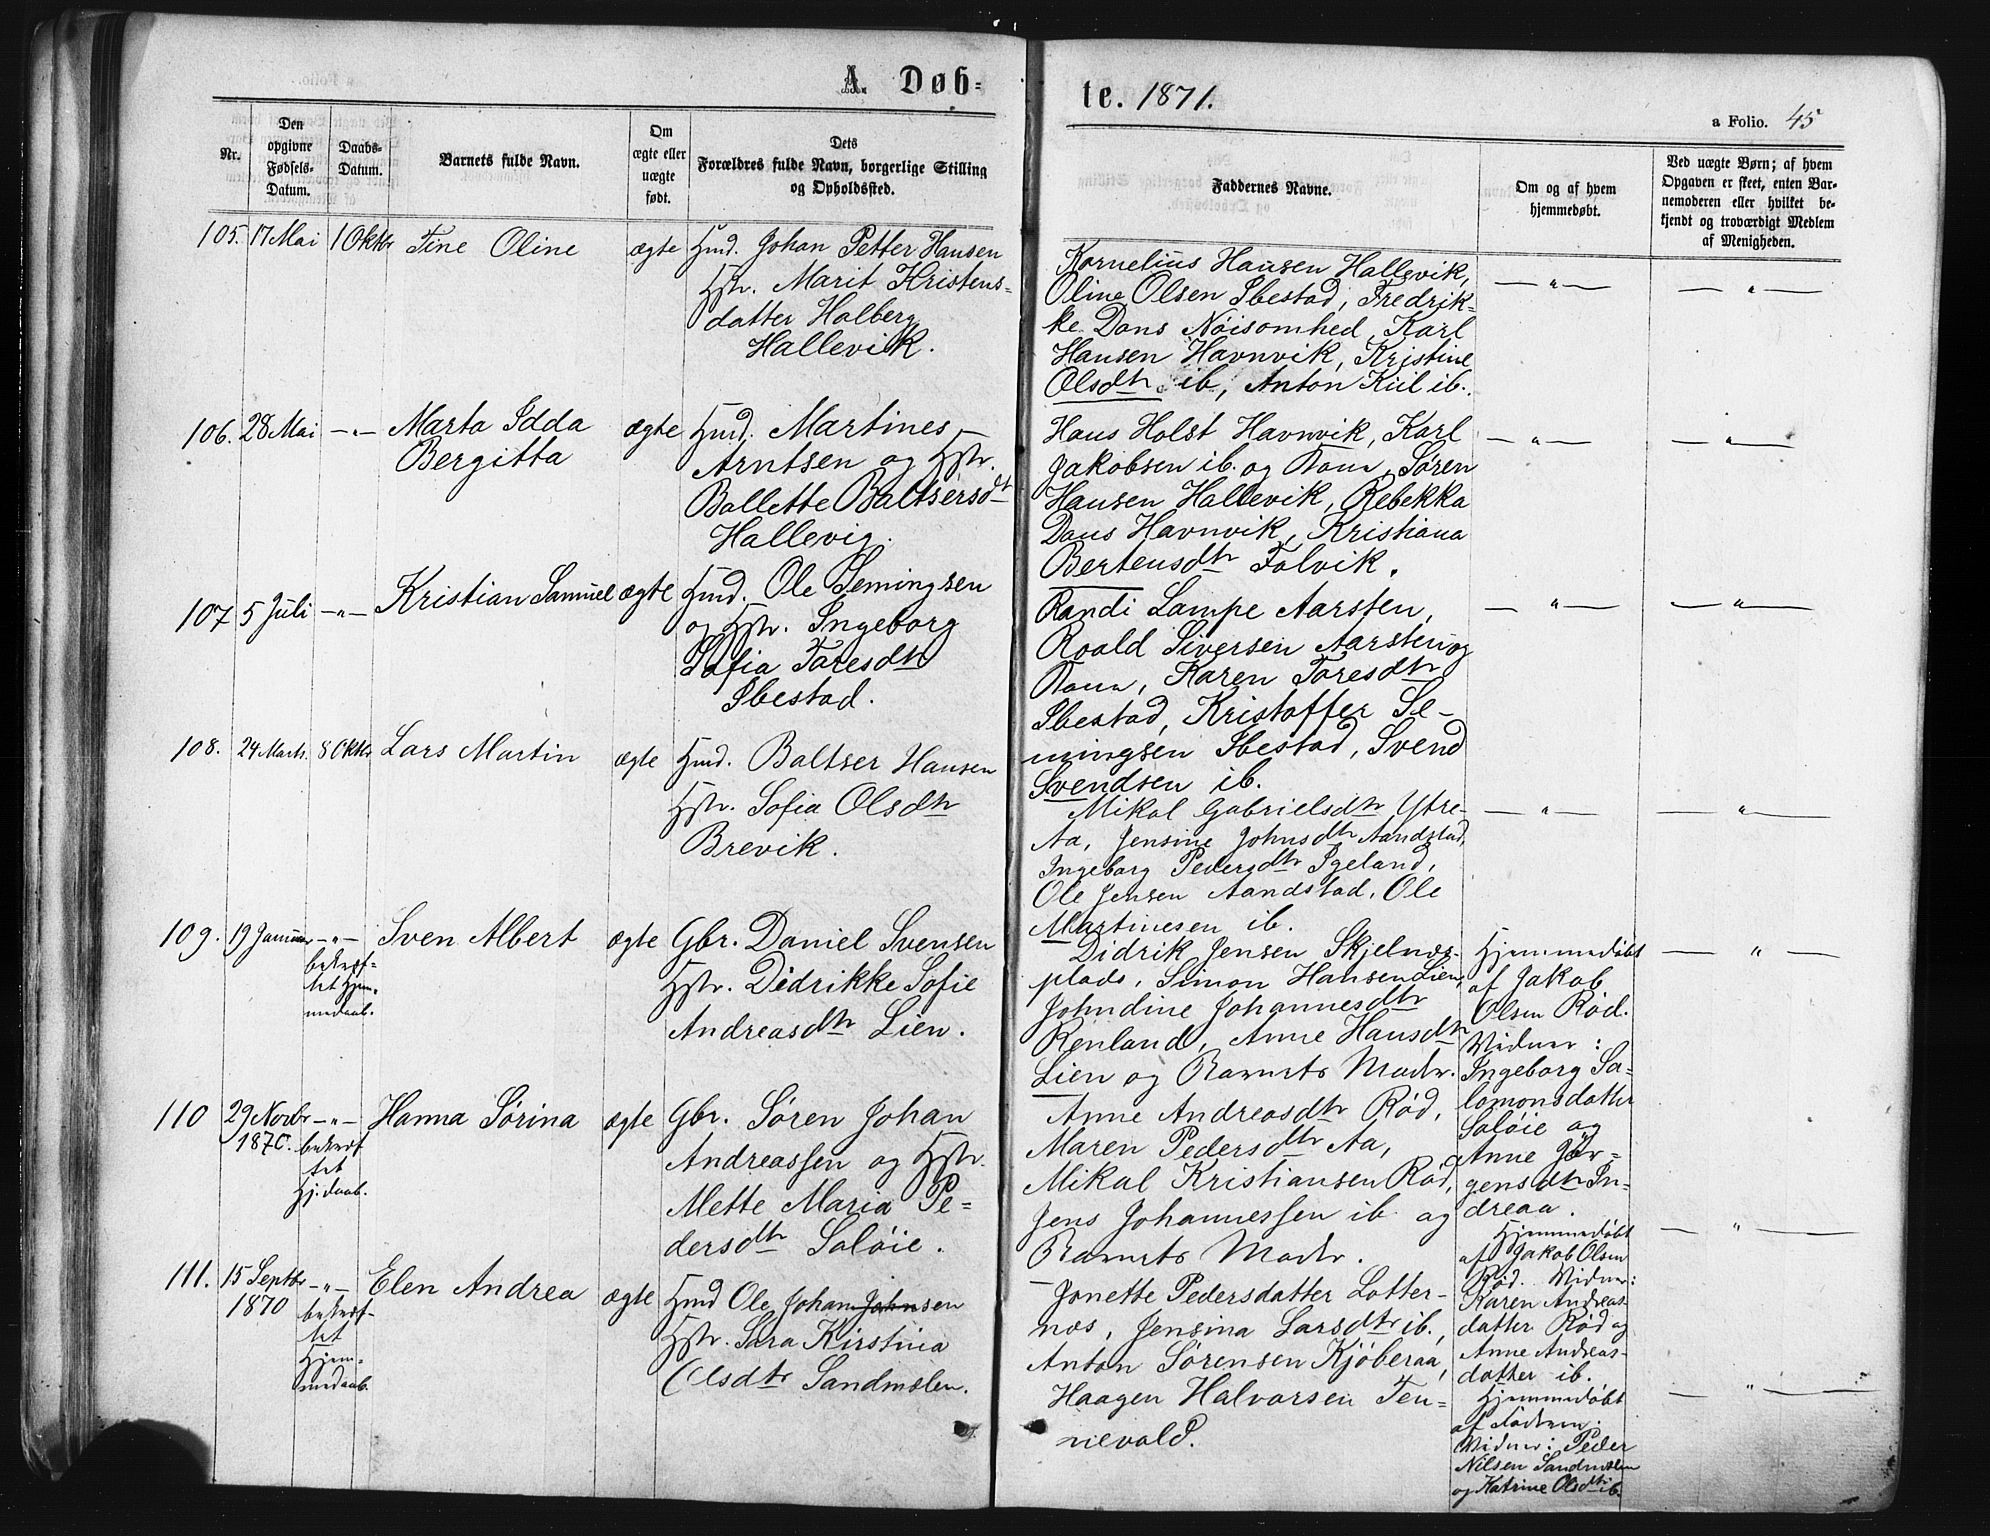 A. Døb-
te. 1871.
a Folio. 45
Nr.
Den opgivne Fødsels-Datum.
Daabs-Datum.
Barnets fulde Navn.
Om ægte eller uægte født.
Dets
Forældres fulde Navn, borgerlige Stilling
og Opholdssted.
Faddernes Navne.
Om og af hvem
hjemmedøbt.
Ved uægte Børn; af hvem
Opgaven er skeet, enten Bar-
nemoderen eller hvilket be-
kjendt og troværdigt Medlem
af Menigheden.
105. 17 Mai 1 Oktbr Tine Oline ægte Hmd. Johan Petter Hansen
Hstr. Marit Kristens-
datter Holberg
Hallevik.
Kornelius Hansen Hallevik,
Oline Olsen Ibestad, Fredrik-
ke Dons Nøisomhed, Karl
Hansen Havnvik, Kristine
Olsdtr ib, Anton Kiil ib.
— " —
— " —
106. 28 Mai — " — Marta Idda ægte Hmd. Martines
Bergitta
Arntsen og Hstr.
Bollette Baltsersdtr
Hallevig.
Hans Holst Havnvik, Karl
Jakobsen ib. og Kone, Søren
Hansen Hallevik, Rebekka
Dons Havnvik, Kristiana
Bertensdtr Folvik.
— " —
— " —
107 5 Juli — " — Kristian Samuel ægte Hmd. Ole Semingsen
og Hstr. Ingeborg
Sofia Toresdtr
Ibestad.
Randi Lampe Aarsten,
Roald Siversen Aarsten og
Kone, Karen Toresdtr
Ibestad, Kristoffer Se-
mingsen Ibestad, Svend
Svendsen ib.
— " —
— " —
108. 24 Marts. 8 Oktbr Lars Martin ægte Hmd. Baltser Hansen
Hstr. Sofia Olsdtr
Brevik.
Mikal Gabrielsdtr Ytre-
Aa, Jensine Johnsdtr Aandstad,
Ingeborg Pedersdtr Igeland,
Ole Jensen Aandstad, Ole
Martinesen ib.
— " —
— " —
109. 19 Januar — " — Sven Albert ægte Gbr. Daniel Svensen
bekræf-
tet Hjem-
medaab.
Hstr. Didrikke Sofie
Andreasdtr Lien.
Didrik Jensen Skjelnæs-
plads, Simon Hansen Lien,
Johndine Johannesdtr
Renland, Anne Hansdtr
Lien og Barnets Moder.
Hjemmedøbt
af Jakob
Olsen Rød.
Vidner:
Ingeborg Sa-
lomonsdatter
Saløie og
Anne Jør-
gensdtr In-
dreaa.
— " —
110 29 Novbr 1870. — " — Hanna Sørina ægte Gbr. Søren Johan
bekræf
tet
Hj.daab.
Andreassen og Hstr.
Mette Maria Pe-
dersdtr Saløie.
Anne Andreasdtr Rød,
Maren Pedersdtr Aa,
Mikal Kristiansen Rød,
Jens Johannessen ib og
Barnets Moder.
Hjemmedøbt
af Jakob Olsen
Rød. Vidner:
Karen Andreas-
datter Rød og
Anne Andreas-
datter ib.
— " —
111. 15 Septbr 1870 — " — Elen Andrea ægte Hmd Ole Johan Johnsen
bekræf-
tet
Hjem-
medaab.
Hstr. Sara Kirstina
Olsdtr Sandmælen.
Jonette Pedersdatter Lotter-
næs, Jensina Larsdtr ib.,
Anton Sørensen Kjøberaa,
Haagen Halvorsen Ten-
nevold.
Hjemmedøbt
af Fadren:
Vidner: Peder
Nilsen Sandmælen
og Katrine Olsdtr ib.
— " —